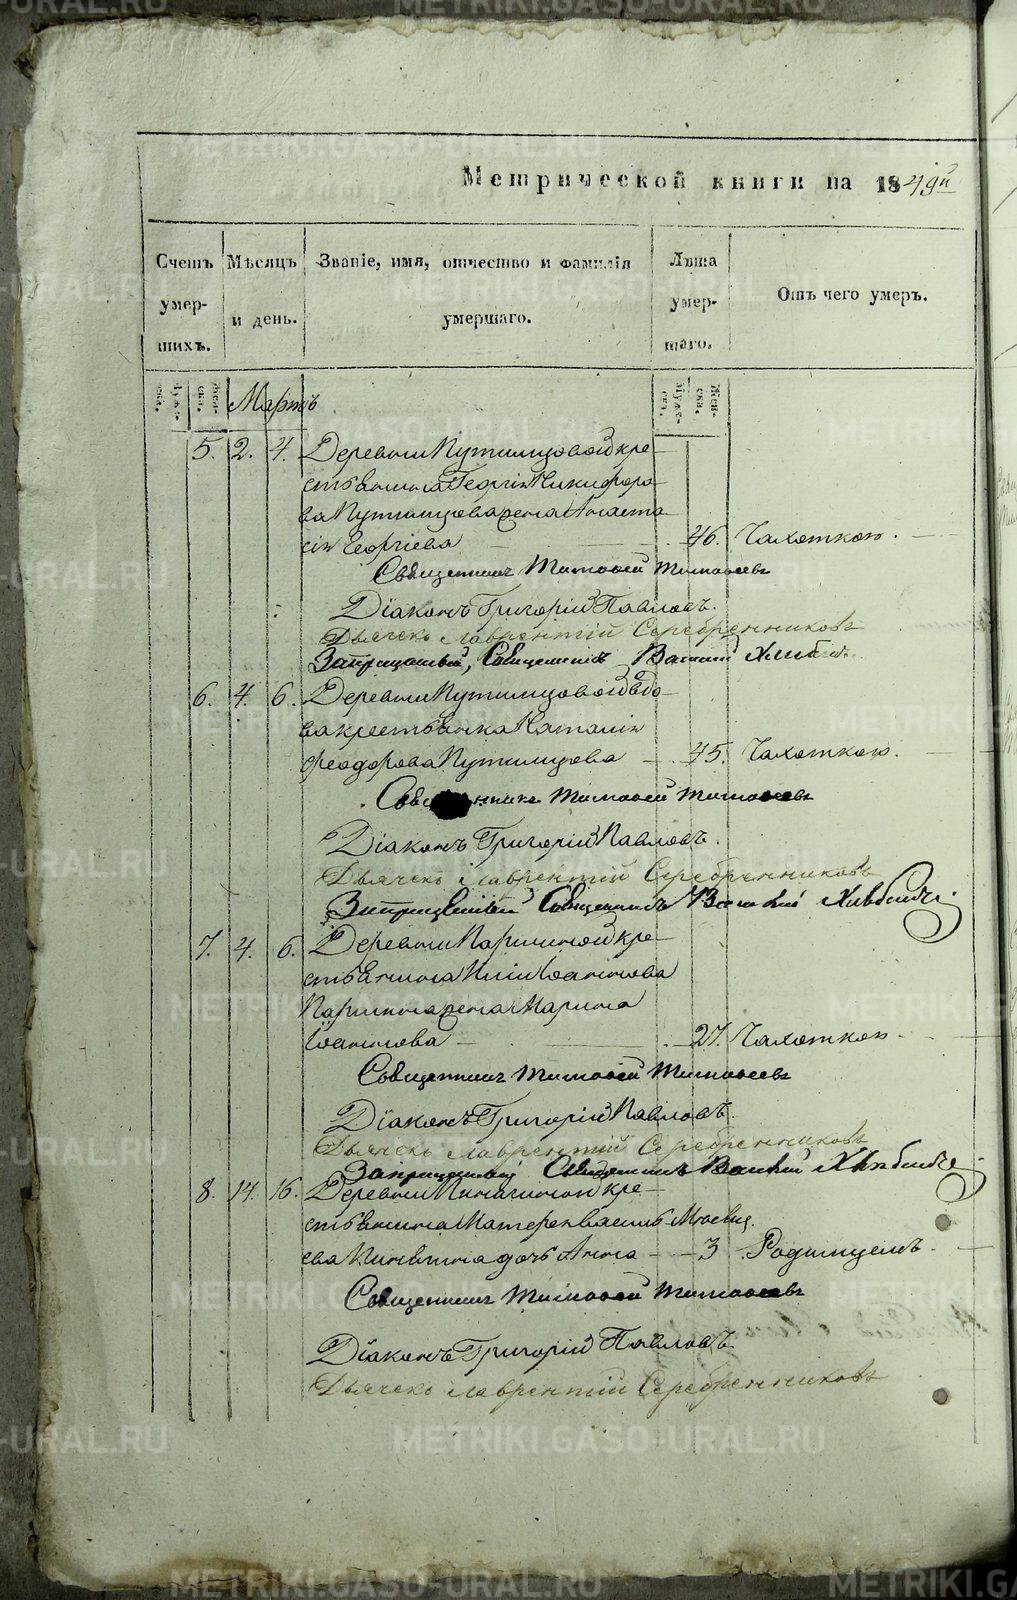 METRIKI.GASO-URAL.RU
Метрической книги на 1849й
Счетъ умер-шихъ.
Мѣсяцъ и день.
Званіе, имя, отчество и фамилія умершаго.
Лѣта умер-шаго.
Отъ чего умеръ.
Муже-ска.
Жен-ска.
Мартъ
Муже-ска.
Жен-ска.
5. 2. 4. Деревни Путимцовой кре-
стьянина Георгія Никифоро-
ва Путимцова жена Анаста-
сія Георгіева 46. Чахоткою.
Священникъ Тимоѳей Тимоѳеевъ
Діаконъ Григорій Павловъ.
Дьячекъ Лаврентій Серебренниковъ
Запрещенный Священникъ
6. 4. 6. Деревни Путимцовой вдо-
ва крестьянка Наталія
Ѳеодорова Путимцова 45. Чахоткою.
Священникъ Тимоѳей Тимоѳеевъ
Діаконъ Григорій Павловъ.
Дьячекъ Лаврентій Серебренниковъ
Запрещенный Священникъ
7. 4. 6. Деревни Паршиной кре-
стьянина Іоаннова
Паршина жена Марина
Іоаннова 27. Чахоткою.
Священникъ Тимоѳей Тимоѳеевъ
Діаконъ Григорій Павловъ.
Дьячекъ Лаврентій Серебренниковъ
Запрещенный Священникъ
8. 14. 16. Деревни кре-
стьянина
дочь Анна 3 Родимцемъ.
Священникъ Тимоѳей Тимоѳеевъ
Діаконъ Григорій Павловъ.
Дьячекъ Лаврентій Серебренниковъ